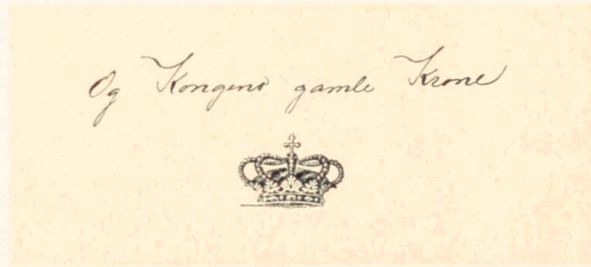 Og Kongens gamle Krone